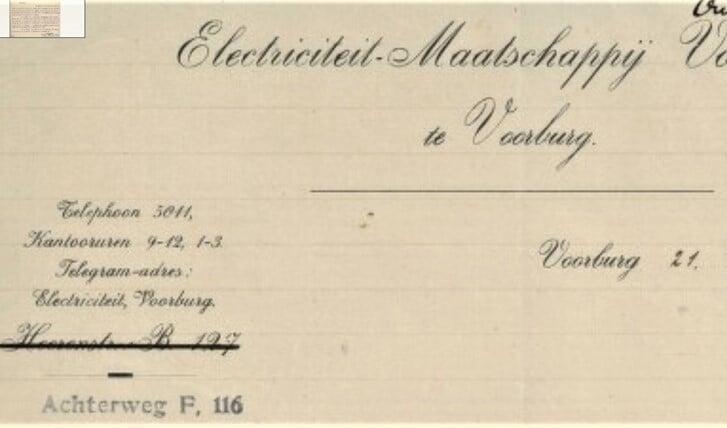 Electriciteit-Maatschappij Vo
te Voorburg.
Telephoon 5011,
Kantooruren 9-12, 1-3.
Telegram-adres:
Electriciteit, Voorburg.
Voorburg 21.
Heerenstr. B. 127
Achterweg F, 116